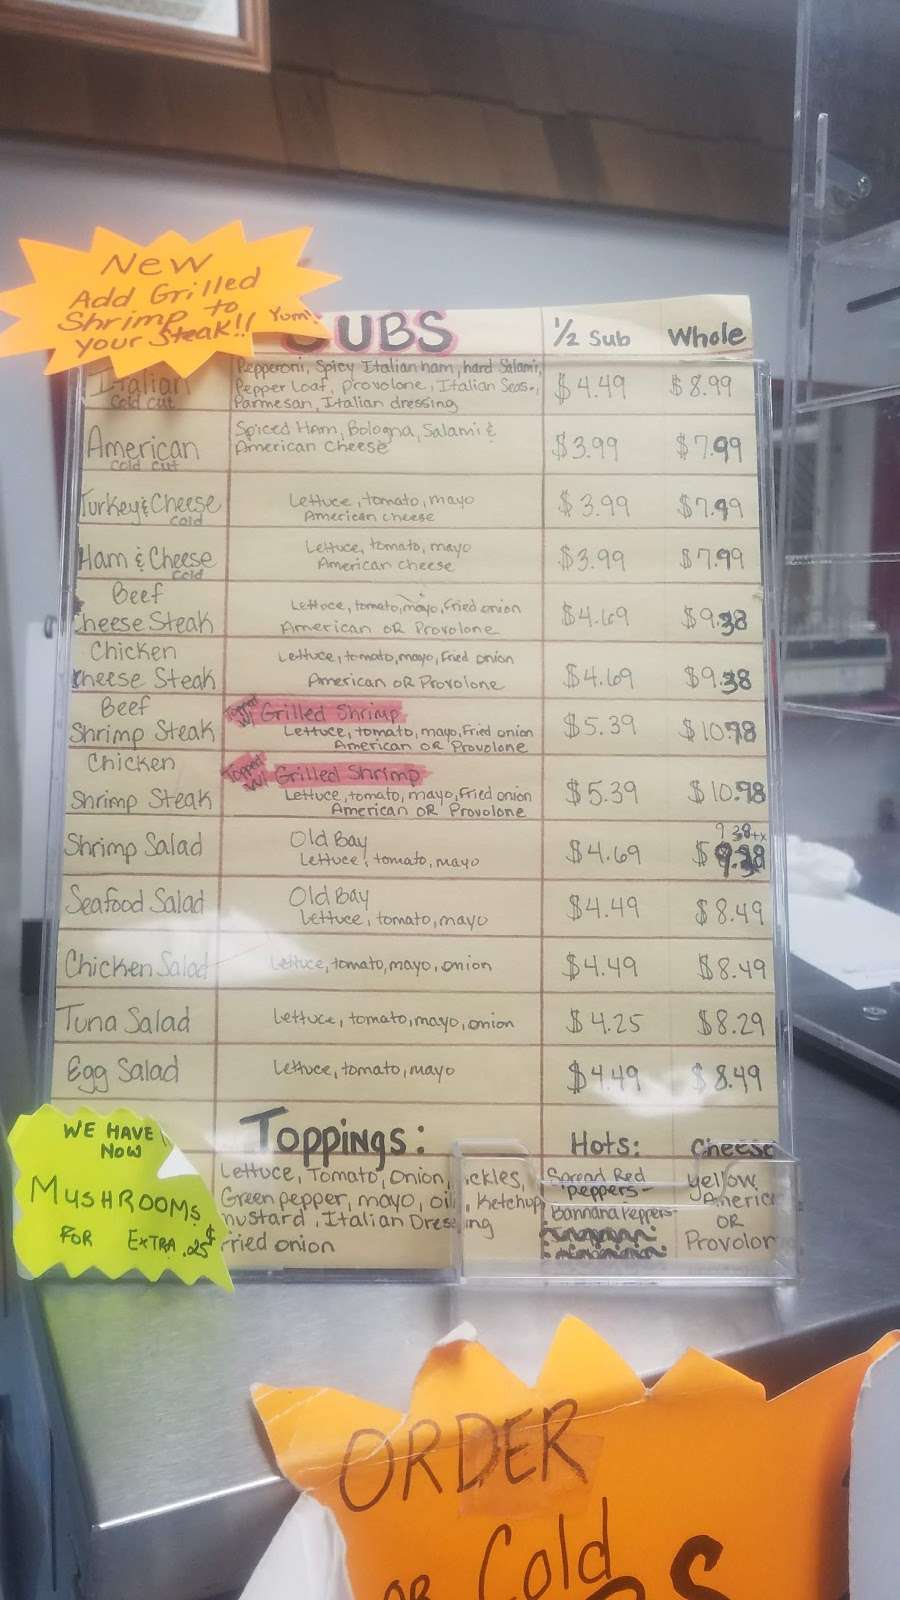 New
Add Grilled
Shrimp to
your Steak!! Yum!
SUBS 1/2 Sub Whole
Italian Cold cut Pepperoni, Spicy Italian ham, hard Salami, Pepper Loaf, provolone, Italian Seas., Parmesan, Italian dressing $4.49 $8.99
American Cold cut Spiced Ham, Bologna, Salami & American Cheese $3.99 $7.99
Turkey & Cheese Cold Lettuce, tomato, mayo American cheese $3.99 $7.99
Ham & Cheese Cold Lettuce, tomato, mayo American cheese $3.99 $7.99
Beef Cheese Steak Lettuce, tomato, mayo, Fried onion American OR Provolone $4.69 $9.38
Chicken Cheese Steak Lettuce, tomato, mayo, Fried onion American OR Provolone $4.69 $9.38
Beef Shrimp Steak Topped W/ Grilled Shrimp Lettuce, tomato, mayo, Fried onion American OR Provolone $5.39 $10.78
Chicken Shrimp Steak Topped W/ Grilled Shrimp Lettuce, tomato, mayo, Fried onion American OR Provolone $5.39 $10.78
Shrimp Salad Old Bay Lettuce, tomato, mayo $4.69 9 38+x $9.38
Seafood Salad Old Bay Lettuce, tomato, mayo $4.49 $8.49
Chicken Salad Lettuce, tomato, mayo, onion $4.49 $8.49
Tuna Salad Lettuce, tomato, mayo, onion $4.25 $8.29
Egg Salad Lettuce, tomato, mayo $4.49 $8.49
WE HAVE
NOW
MUSHROOMS
FOR EXTRA .25¢
Toppings:
Lettuce, Tomato, Onion, ickles,
Green pepper, mayo, oil, Ketchup
mustard, Italian Dressing
Fried onion
Hots:
Spread Red
peppers-
Bannana Peppers-
Cheese
Yellow
Americ
OR
Provolon
ORDER
OR Cold